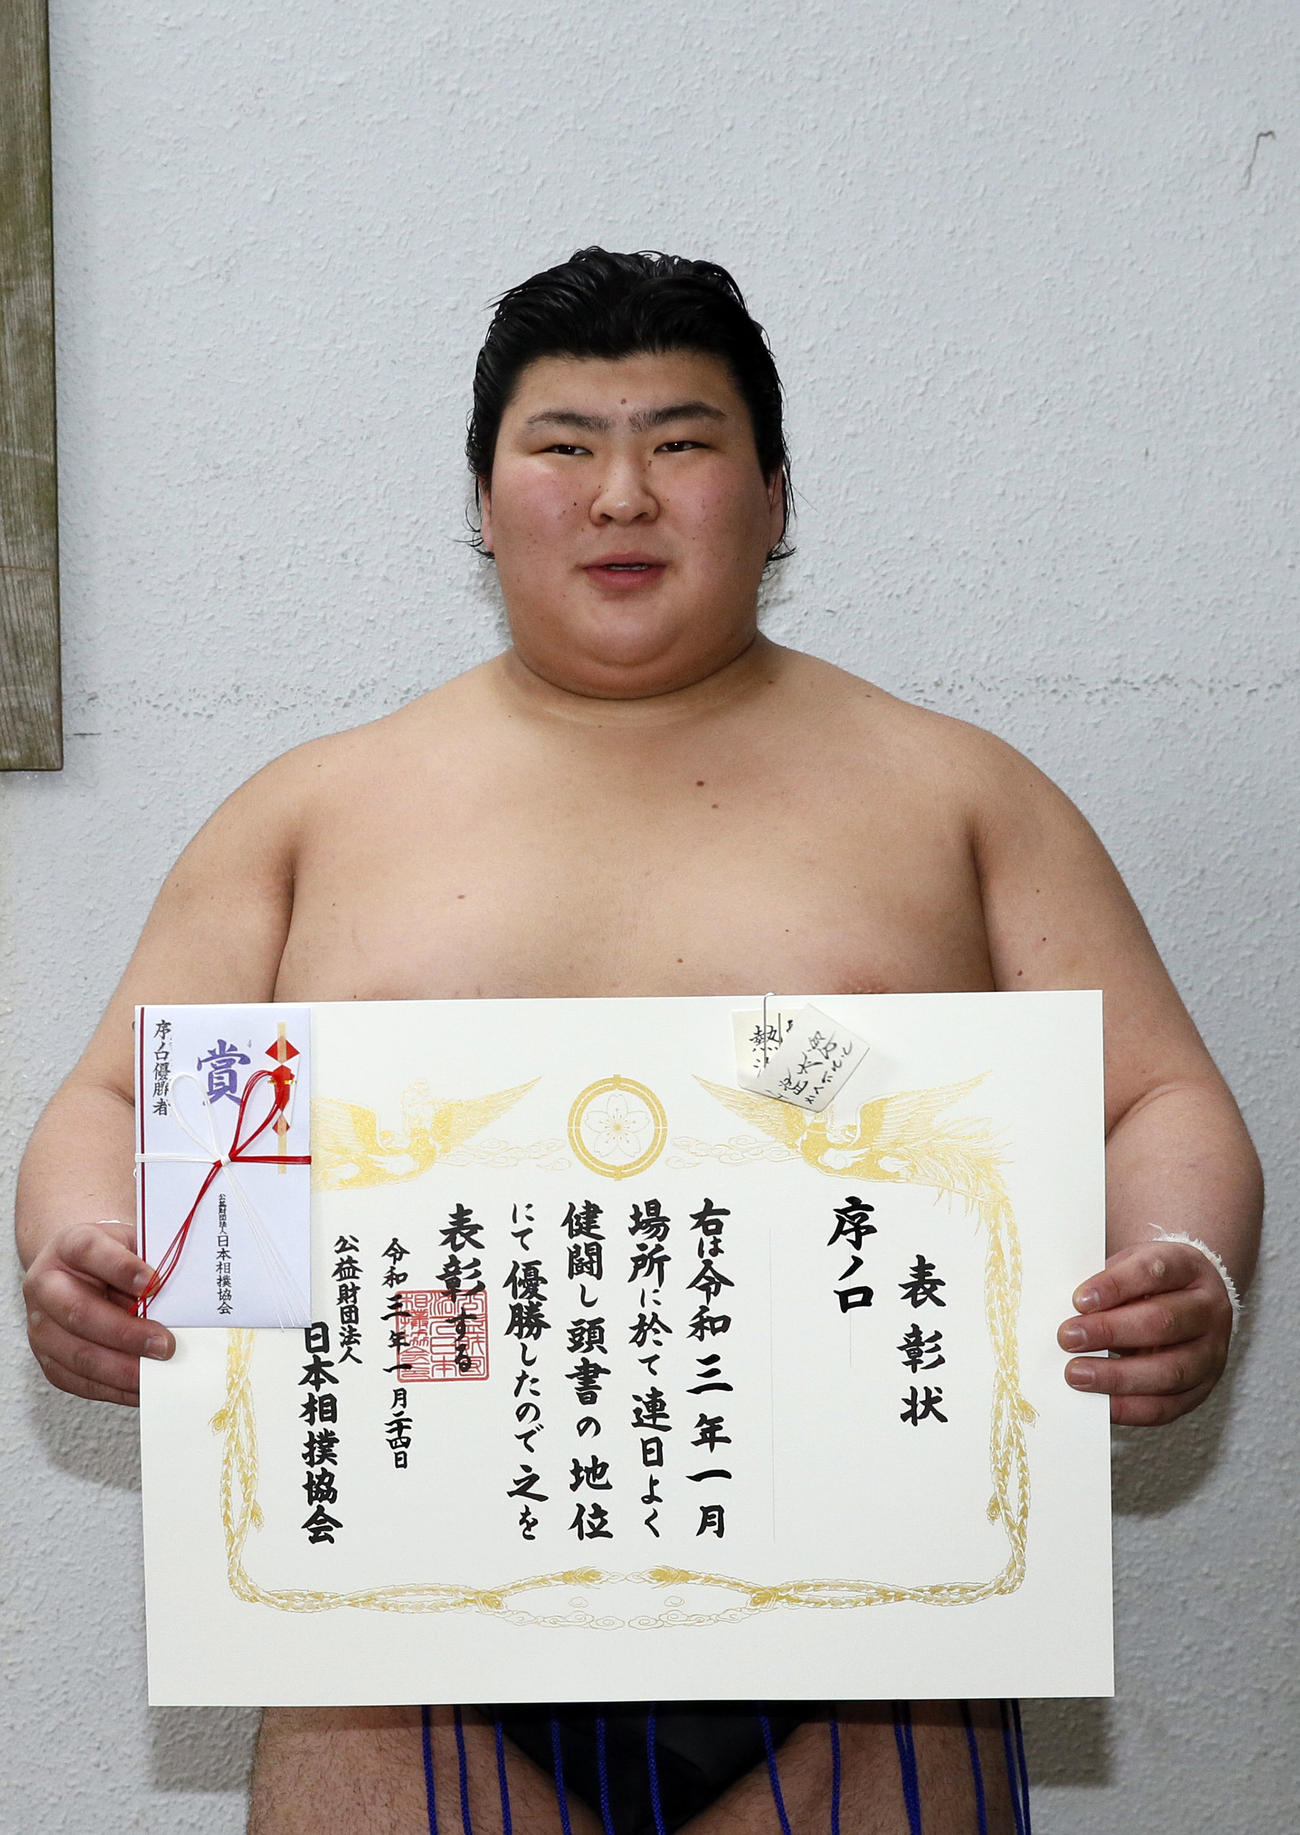 表彰状
序ノ口
右は令和三年一月
場所に於て連日よく
健闘し頭書の地位
にて優勝したので之を
表彰する
令和三年一月二十四日
公益財団法人
日本相撲協会
賞
序ノ口優勝者
公益財団法人日本相撲協会